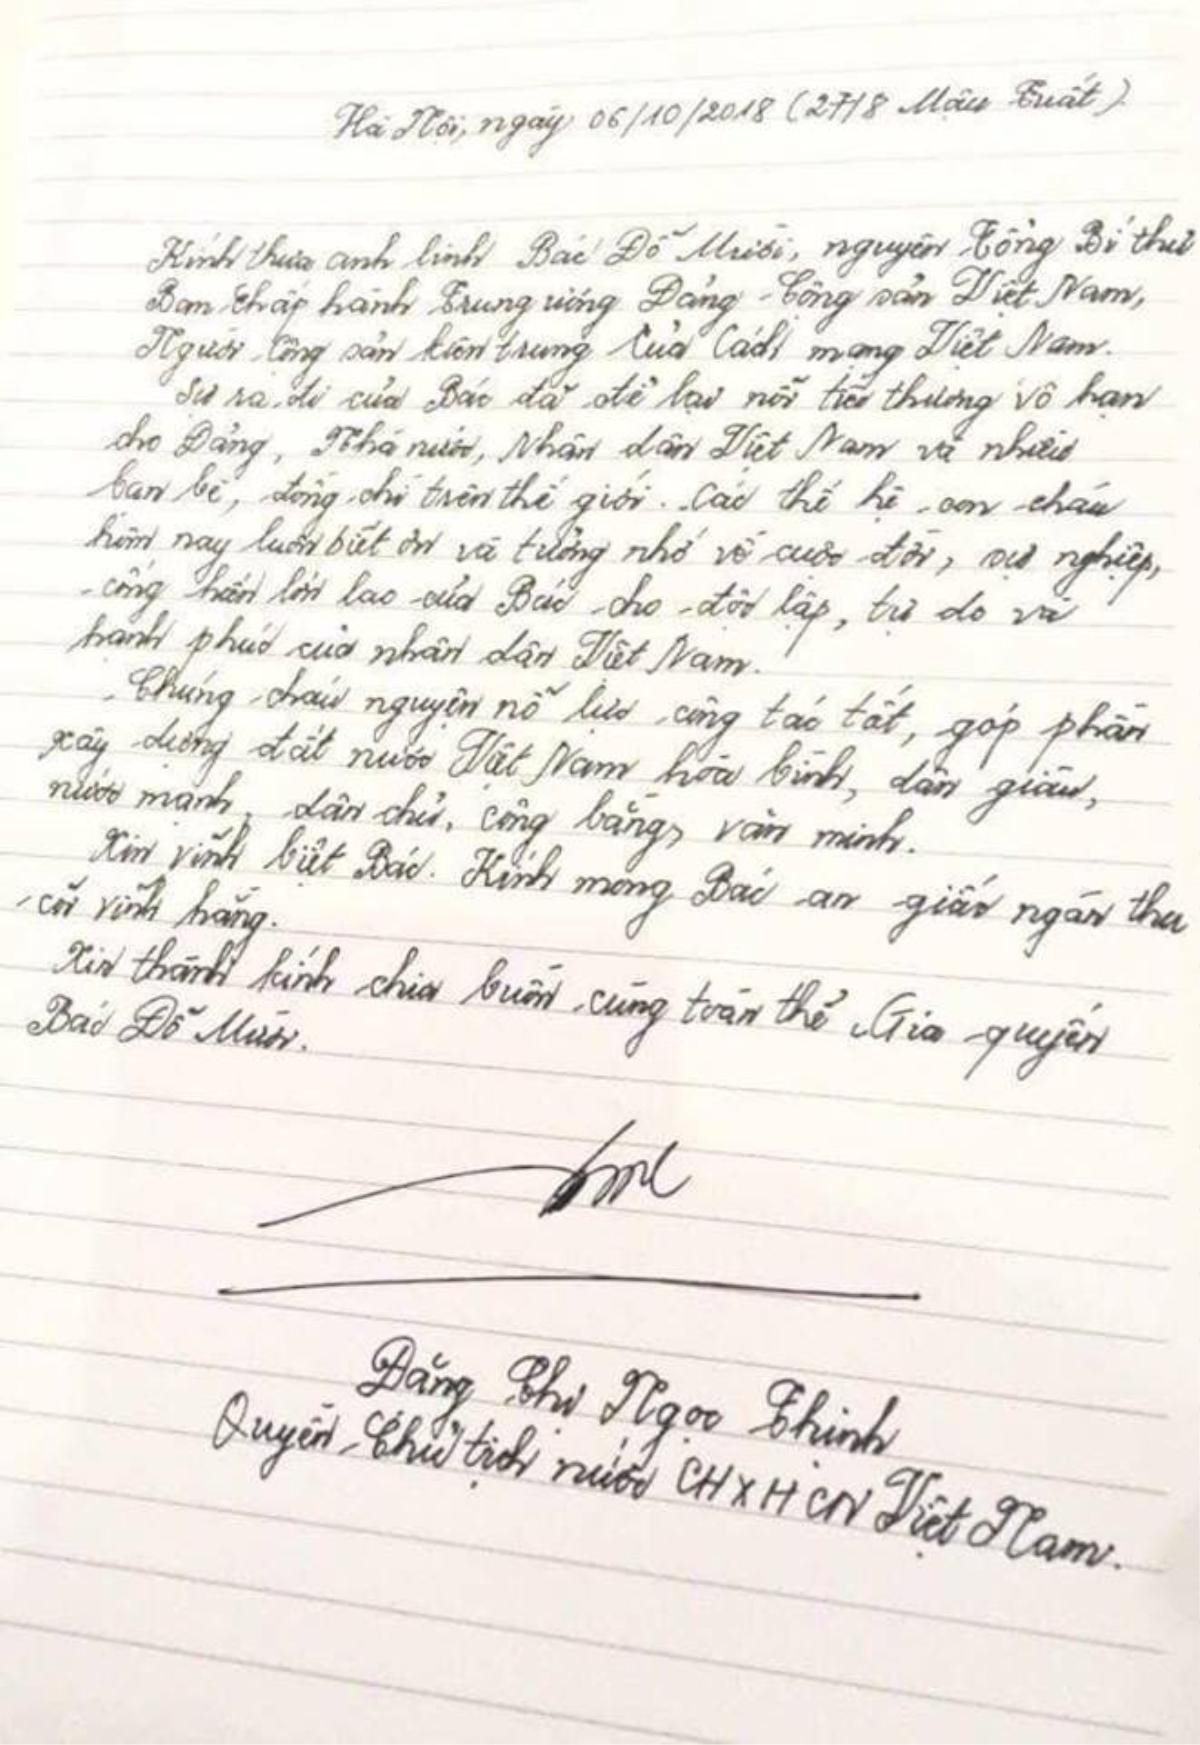 Hà Nội, ngày 06/10/2018 (27/8 Mậu Tuất)
Kính thưa anh linh Bác Đỗ Mười, nguyên Tổng Bí thư
Ban Chấp hành Trung ương Đảng Cộng sản Việt Nam,
Người Cộng sản kiên trung của Cách mạng Việt Nam.
Sự ra đi của Bác đã để lại nỗi tiếc thương vô hạn
cho Đảng, Nhà nước, Nhân dân Việt Nam và nhiều
bạn bè, đồng chí trên thế giới. Các thế hệ con cháu
hôm nay luôn biết ơn và tưởng nhớ về cuộc đời, sự nghiệp,
cống hiến lớn lao của Bác cho độc lập, tự do và
hạnh phúc của nhân dân Việt Nam.
Chúng cháu nguyện nỗ lực công tác tốt, góp phần
xây dựng đất nước Việt Nam hòa bình, dân giàu,
nước mạnh, dân chủ, công bằng, văn minh.
Xin vĩnh biệt Bác. Kính mong Bác an giấc ngàn thu
cõi vĩnh hằng.
Xin thành kính chia buồn cùng toàn thể Gia quyến
Bác Đỗ Mười.
Đặng Thị Ngọc Thịnh
Quyền Chủ tịch nước CHXHCN Việt Nam.